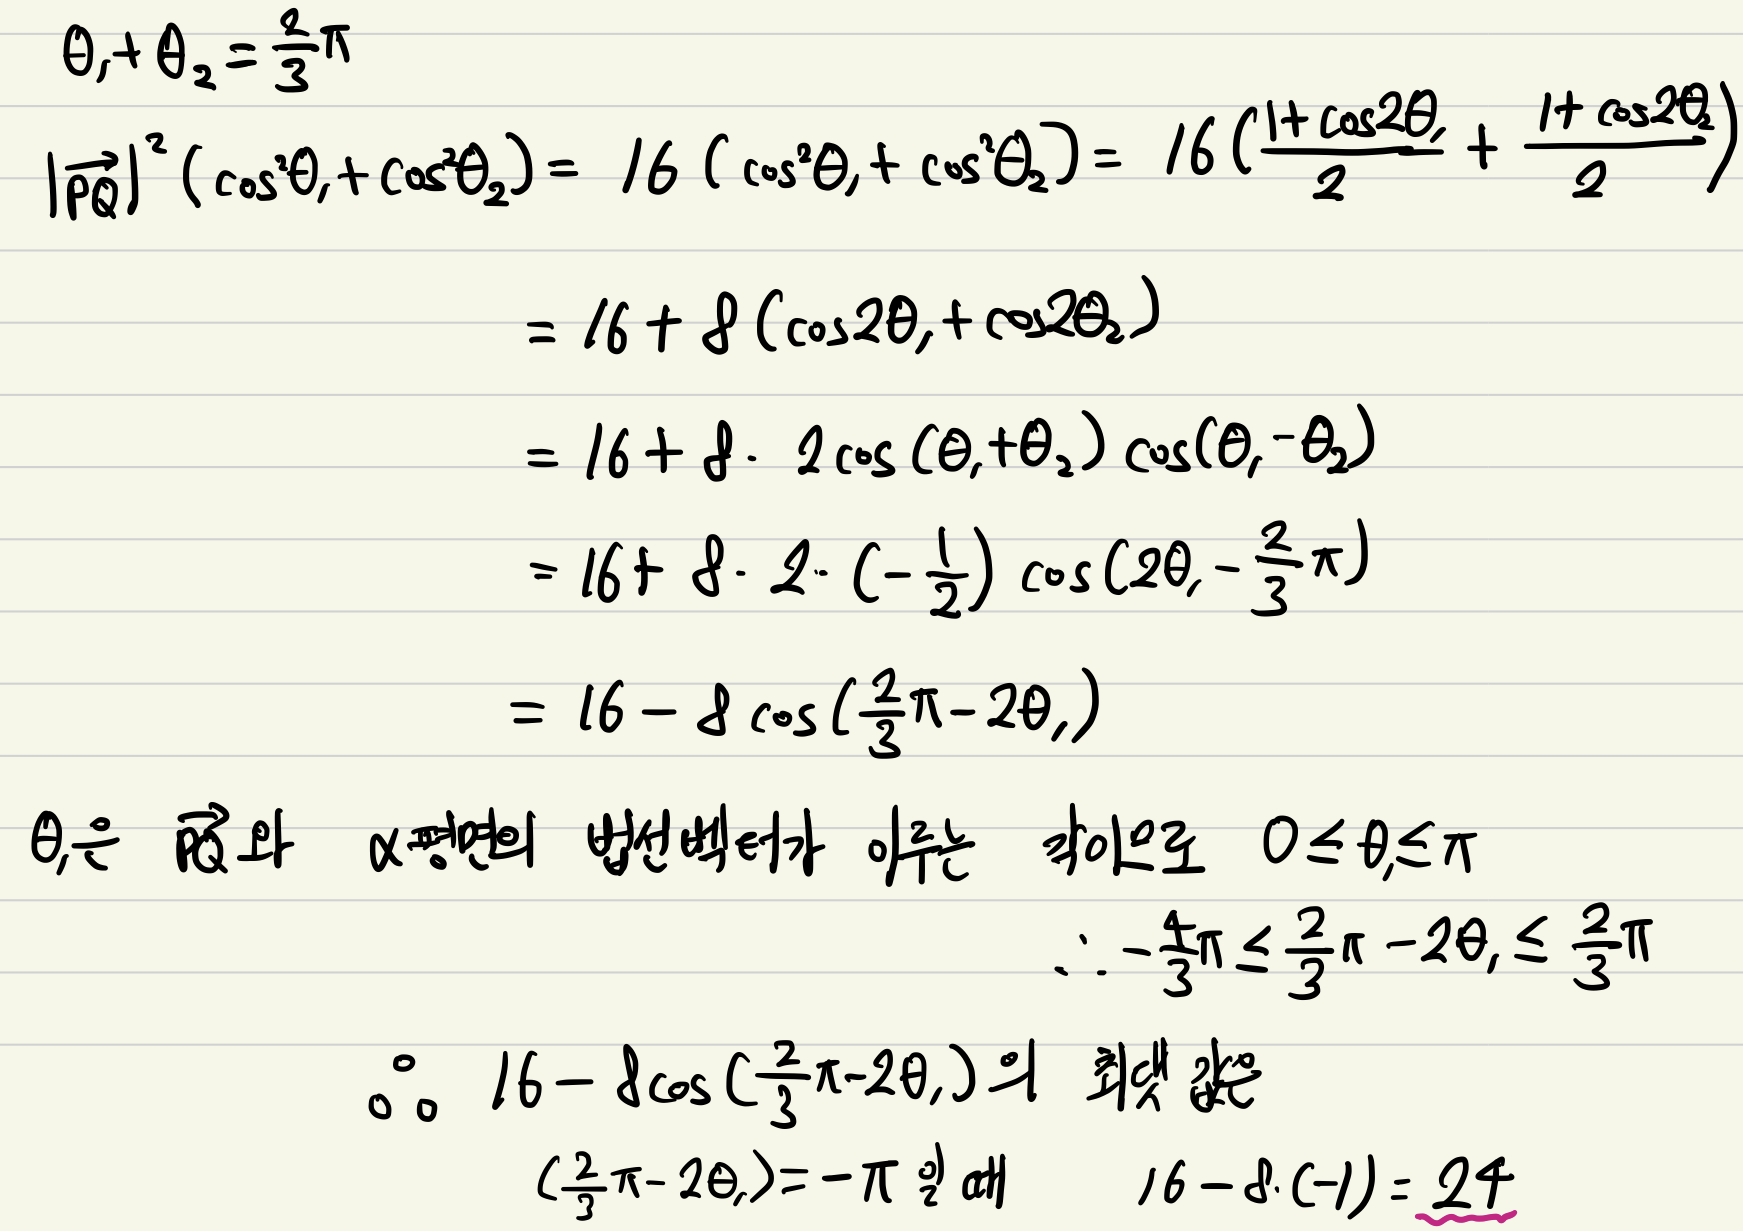 θ₁+θ₂=2/3π
|PQ→|²(cos²θ₁+cos²θ₂)= 16(cos²θ₁+cos²θ₂)= 16((1+cos2θ₁)/2 + (1+cos2θ₂)/2)
= 16+8(cos2θ₁+cos2θ₂)
= 16+8· 2cos(θ₁+θ₂)cos(θ₁-θ₂)
= 16+8·2·(-1/2)cos(2θ₁-2/3π)
= 16-8cos(2/3π-2θ₁)
θ₁는 PQ→와 α평면의 법선벡터가 이루는 각이므로 0≤θ₁≤π
∴ -4/3π≤2/3π-2θ₁≤2/3π
∴ 16-8cos(2/3π-2θ₁)의 최댓값은
(2/3π-2θ₁)=-π 일 때 16-8·(-1)=24